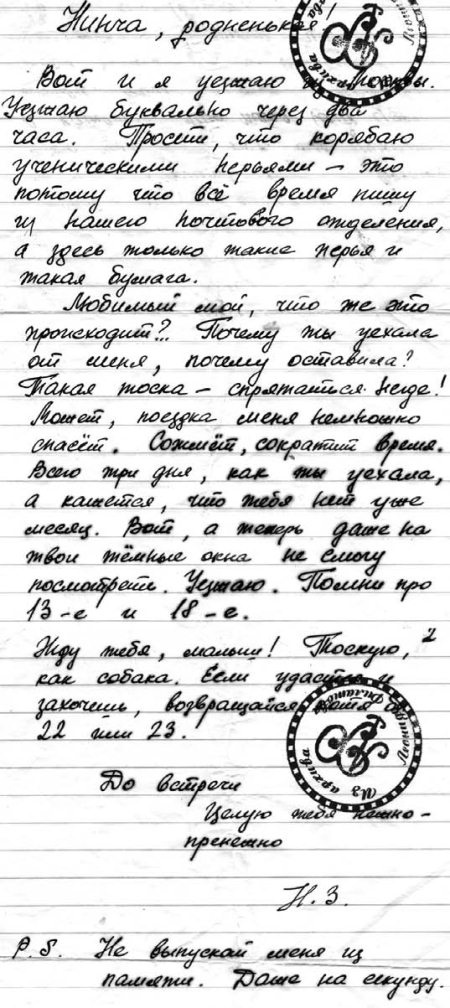 Нинча, родненькая!
Вот и я уезжаю из Москвы.
Уезжаю буквально через два
часа. Прости, что корябаю
ученическими перьями – это
потому что всё время пишу
из нашего почтового отделения,
а здесь только такие перья и
такая бумага.
Любимый мой, что же это
происходит?.. Почему ты уехала
от меня, почему оставила?
Такая тоска – спрятаться негде!
Может, поездка меня немножко
спасёт. Сожмёт, сократит время.
Всего три дня, как ты уехала,
а кажется, что тебя нет уже
месяц. Вот, а теперь даже на
твои тёмные окна не смогу
посмотреть. Уезжаю. Помни про
13-е и 18-е.
Жду тебя, малыш! Тоскую,
как собака. Если удастся и
захочешь, возвращайся хотя
22 или 23.
До встречи
Целую тебя нежно-
пренежно
Н. З.
P.S. Не выпускай меня из
памяти. Даже на секунду.
Из архива
Леонида
Филатова